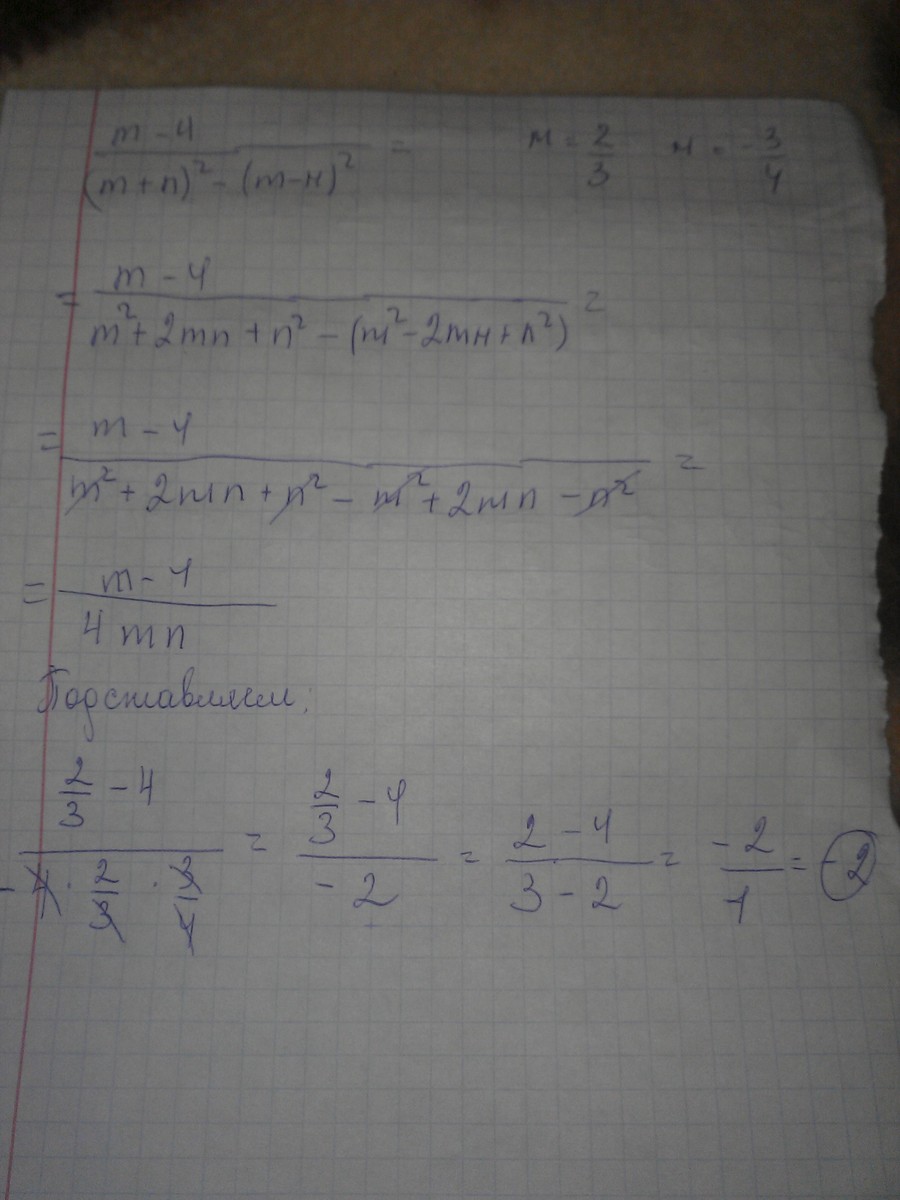 (m - 4) / ((m + n)² - (m - н)²) =   м = 2/3   н = -3/4
= (m - 4) / (m² + 2mn + n² - (m² - 2mн + n²)) =
= (m - 4) / (m² + 2mn + n² - m² + 2mn - n²) =
= (m - 4) / (4mn)
Подставляем:
(2/3 - 4) / (-4 · 2/3 · 3/4) = (2/3 - 4) / (-2) = (2 - 4) / (3 - 2) = -2/1 = -2